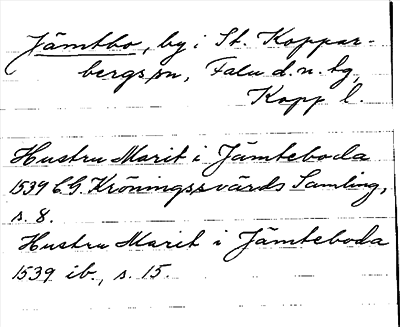 Jämtbo, by i St. Koppar-
bergs sn, Falu d.n. tg,
Kopp l.
Hustru Marit i Jämteboda
1539 C.G. Kröningssvärds Samling,
s. 8.
Hustru Marit i Jämteboda
1539 ib., s. 15.